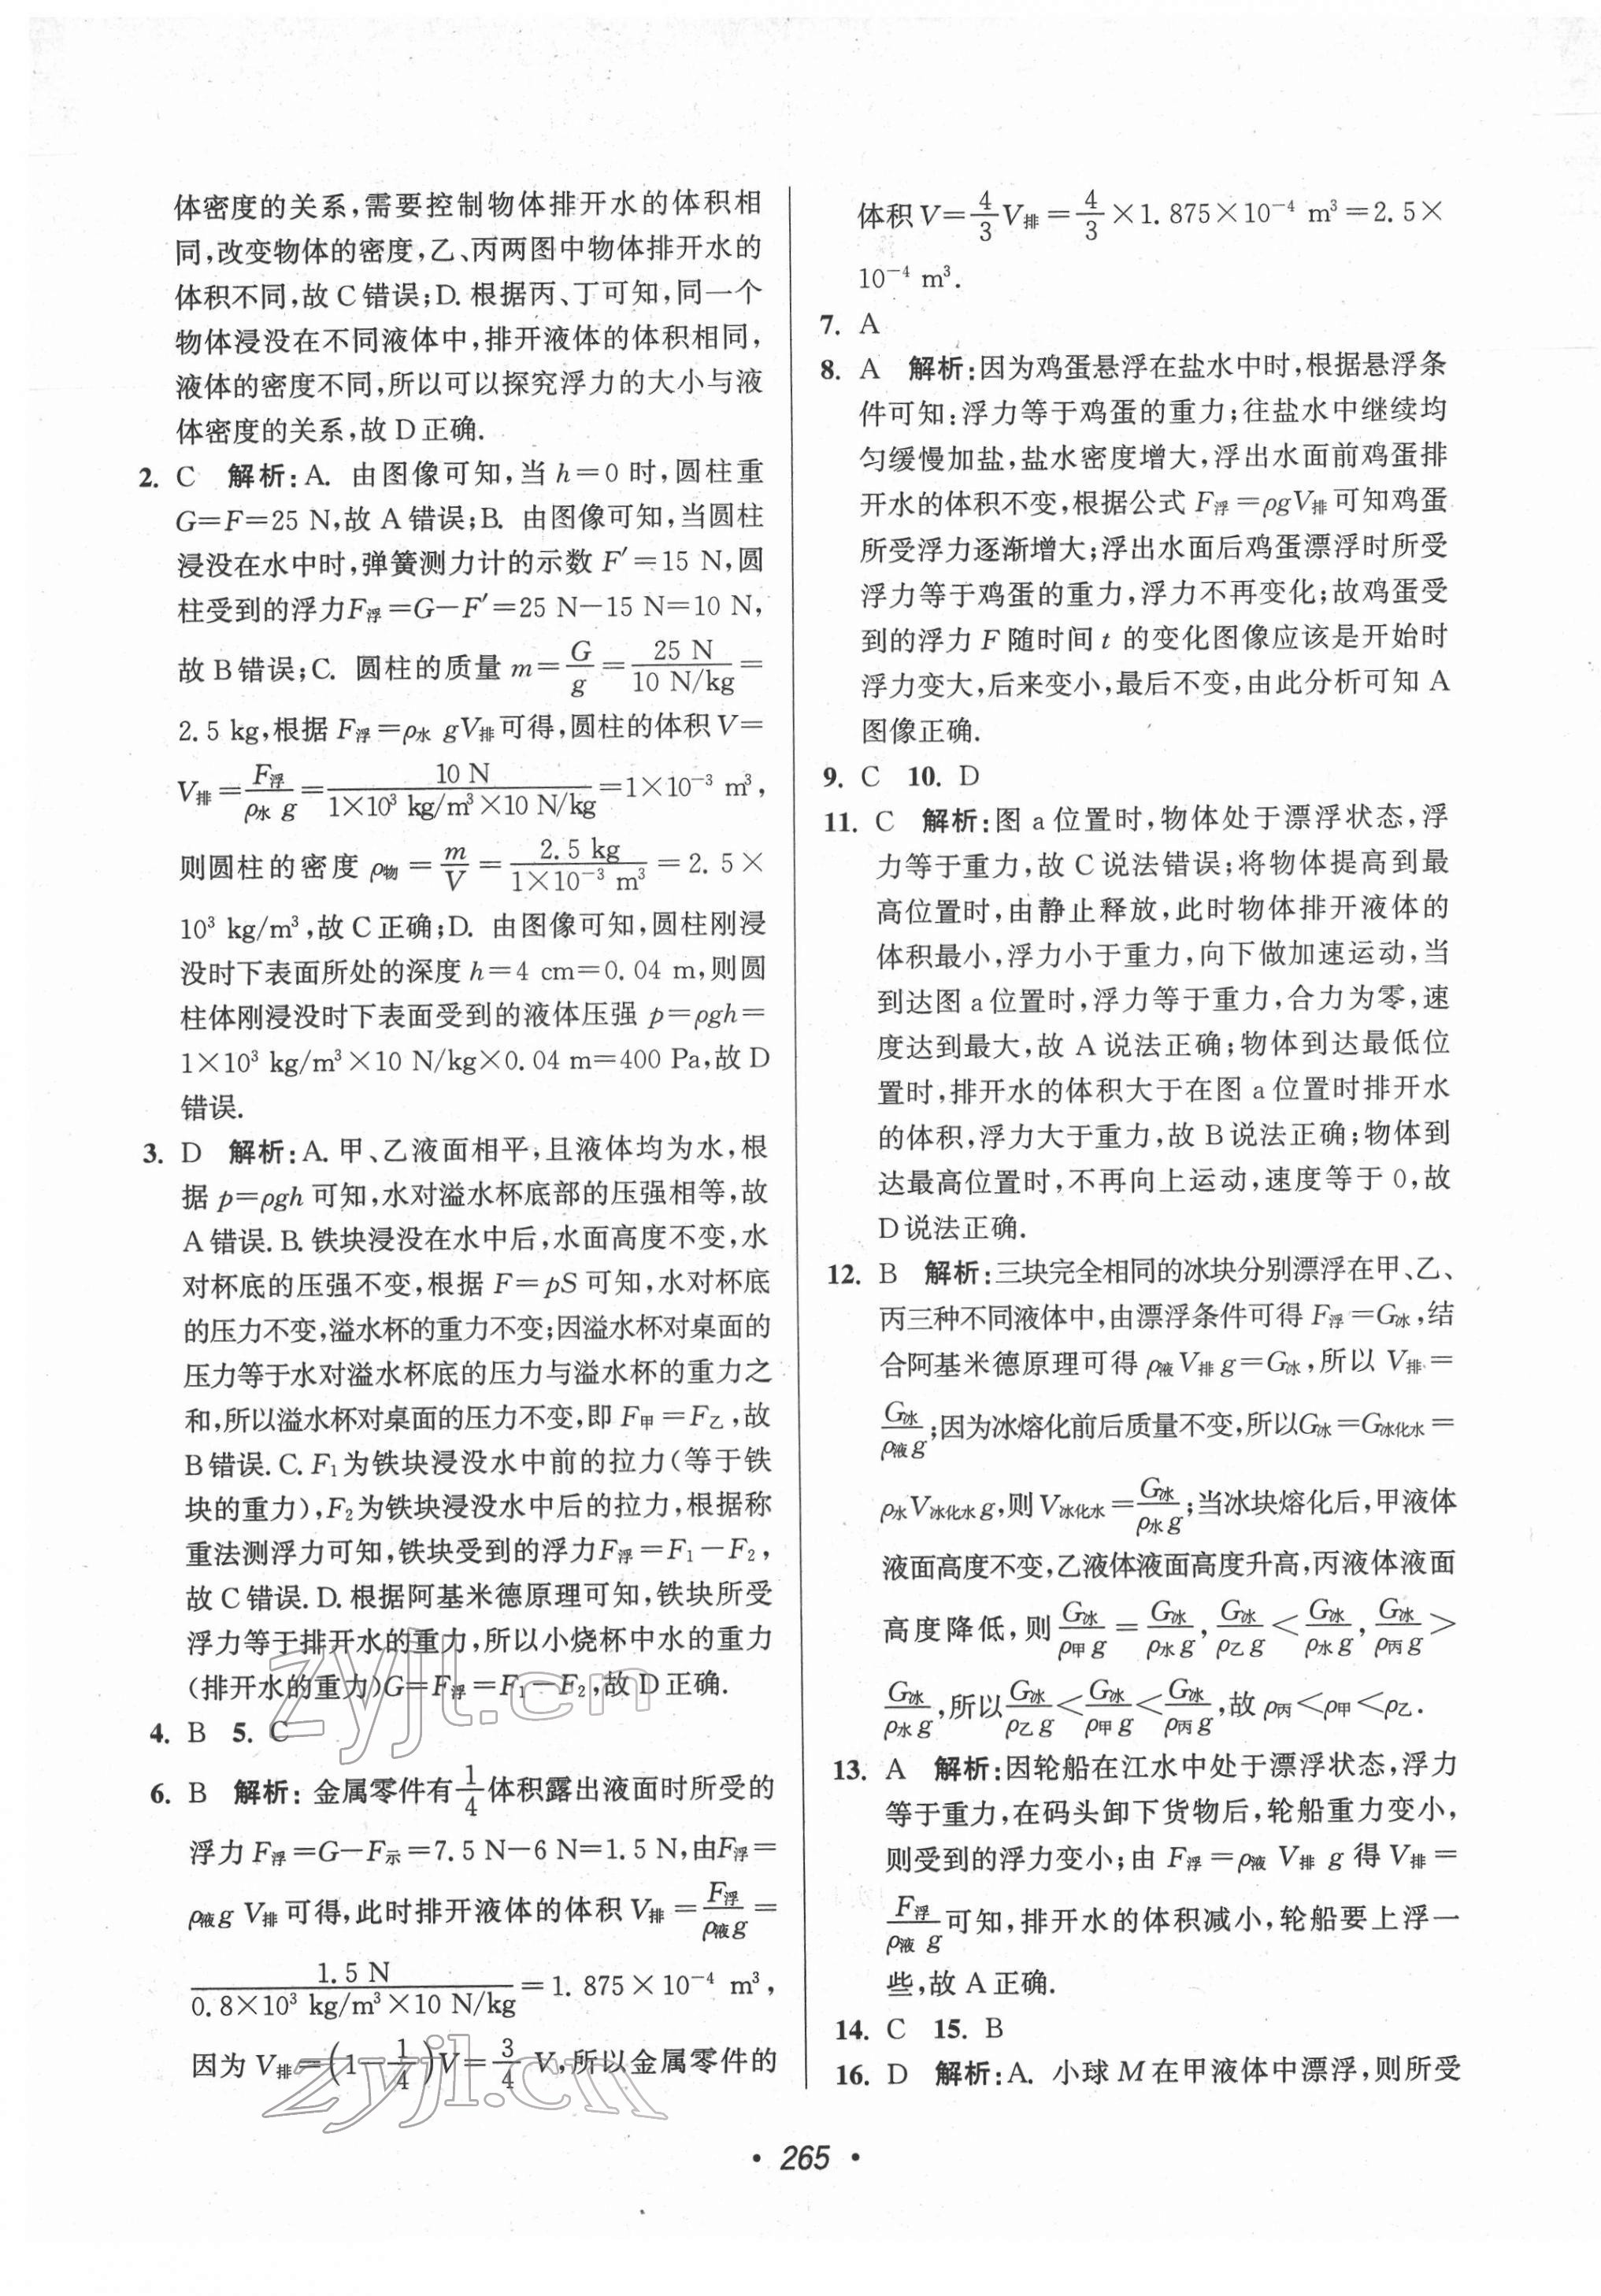 体密度的关系,需要控制物体排开水的体积相
同,改变物体的密度,乙、丙两图中物体排开水的
体积不同,故C错误;D.根据丙、丁可知,同一个
物体浸没在不同液体中,排开液体的体积相同,
液体的密度不同,所以可以探究浮力的大小与液
体密度的关系,故D正确.
2. C 解析:A. 由图像可知,当h=0时,圆柱重
G=F=25 N,故A错误;B. 由图像可知,当圆柱
浸没在水中时,弹簧测力计的示数F′=15 N,圆
柱受到的浮力F浮=G-F′=25 N-15 N=10 N,
故B错误;C. 圆柱的质量m=G/g=25 N/10 N/kg=
2.5 kg,根据F浮=ρ水 gV排可得,圆柱的体积V=
V排=F浮/ρ水 g=10 N/1×10³ kg/m³×10 N/kg=1×10⁻³ m³,
则圆柱的密度ρ物=m/V=2.5 kg/1×10⁻³ m³=2.5×
10³ kg/m³,故C正确;D. 由图像可知,圆柱刚浸
没时下表面所处的深度h=4 cm=0.04 m,则圆
柱体刚浸没时下表面受到的液体压强p=ρgh=
1×10³ kg/m³×10 N/kg×0.04 m=400 Pa,故D
错误.
3. D 解析:A.甲、乙液面相平,且液体均为水,根
据p=ρgh可知,水对溢水杯底部的压强相等,故
A错误.B.铁块浸没在水中后,水面高度不变,水
对杯底的压强不变,根据F=pS可知,水对杯底
的压力不变,溢水杯的重力不变;因溢水杯对桌面的
压力等于水对溢水杯底的压力与溢水杯的重力之
和,所以溢水杯对桌面的压力不变,即F甲=F乙,故
B错误.C.F₁为铁块浸没水中前的拉力(等于铁
块的重力),F₂为铁块浸没水中后的拉力,根据称
重法测浮力可知,铁块受到的浮力F浮=F₁-F₂,
故C错误.D.根据阿基米德原理可知,铁块所受
浮力等于排开水的重力,所以小烧杯中水的重力
(排开水的重力)G=F浮=F₁-F₂,故D正确.
4. B 5. C
6. B 解析:金属零件有1/4体积露出液面时所受的
浮力F浮=G-F示=7.5 N-6 N=1.5 N,由F浮=
ρ液g V排可得,此时排开液体的体积V排=F浮/ρ液g=
1.5 N/0.8×10³ kg/m³×10 N/kg=1.875×10⁻⁴ m³,
因为V排=(1-1/4)V=3/4 V,所以金属零件的
体积V=4/3V排=4/3×1.875×10⁻⁴ m³=2.5×
10⁻⁴ m³.
7. A
8. A 解析:因为鸡蛋悬浮在盐水中时,根据悬浮条
件可知:浮力等于鸡蛋的重力;往盐水中继续均
匀缓慢加盐,盐水密度增大,浮出水面前鸡蛋排
开水的体积不变,根据公式F浮=ρgV排可知鸡蛋
所受浮力逐渐增大;浮出水面后鸡蛋漂浮时所受
浮力等于鸡蛋的重力,浮力不再变化;故鸡蛋受
到的浮力F随时间t的变化图像应该是开始时
浮力变大,后来变小,最后不变,由此分析可知A
图像正确.
9. C 10. D
11. C 解析:图a位置时,物体处于漂浮状态,浮
力等于重力,故C说法错误;将物体提高到最
高位置时,由静止释放,此时物体排开液体的
体积最小,浮力小于重力,向下做加速运动,当
到达图a位置时,浮力等于重力,合力为零,速
度达到最大,故A说法正确;物体到达最低位
置时,排开水的体积大于在图a位置时排开水
的体积,浮力大于重力,故B说法正确;物体到
达最高位置时,不再向上运动,速度等于0,故
D说法正确.
12. B 解析:三块完全相同的冰块分别漂浮在甲、乙、
丙三种不同液体中,由漂浮条件可得F浮=G冰,结
合阿基米德原理可得ρ液V排g=G冰,所以V排=
G冰/ρ液g;因为冰熔化前后质量不变,所以G冰=G冰化水=
ρ水V冰化水g,则V冰化水=G冰/ρ水g;当冰块熔化后,甲液体
液面高度不变,乙液体液面高度升高,丙液体液面
高度降低,则G冰/ρ甲g=G冰/ρ水g,G冰/ρ乙g<G冰/ρ水g,G冰/ρ丙g>
G冰/ρ水g,所以G冰/ρ乙g<G冰/ρ甲g<G冰/ρ丙g,故ρ丙<ρ甲<ρ乙.
13. A 解析:因轮船在江水中处于漂浮状态,浮力
等于重力,在码头卸下货物后,轮船重力变小,
则受到的浮力变小;由F浮=ρ液 V排 g得V排=
F浮/ρ液 g可知,排开水的体积减小,轮船要上浮一
些,故A正确.
14. C 15. B
16. D 解析:A. 小球M在甲液体中漂浮,则所受
· 265 ·
zyjl.cn
zyjl.cn